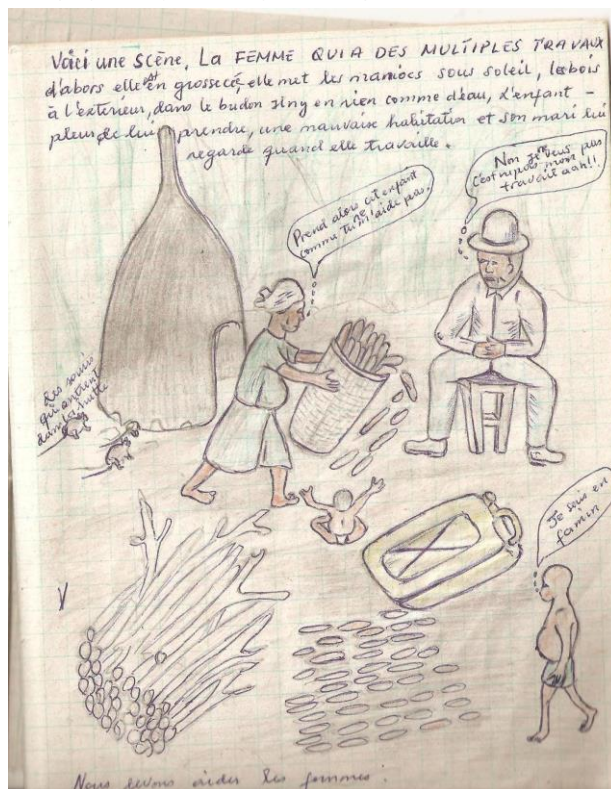 Voici une scène, La FEMME QUI A DES MULTIPLES TRAVAUX
d'abors elle est en grossecé, elle met les maniocs sous soleil, les bois
à l'extérieur, dans le budon il ny en rien comme d'eau, l'enfant -
pleur de lui prendre, une mauvaix habitation et son mari lui
regarde quand elle travaille.
Prend alors cet enfant
comme tu ne m'aide pas.
Non je n'veus pas
c'est mon
travail aah!!
Les souris
qui entrent
dans la
hutte
Je suis en
famin
Nous devons aider les femmes.